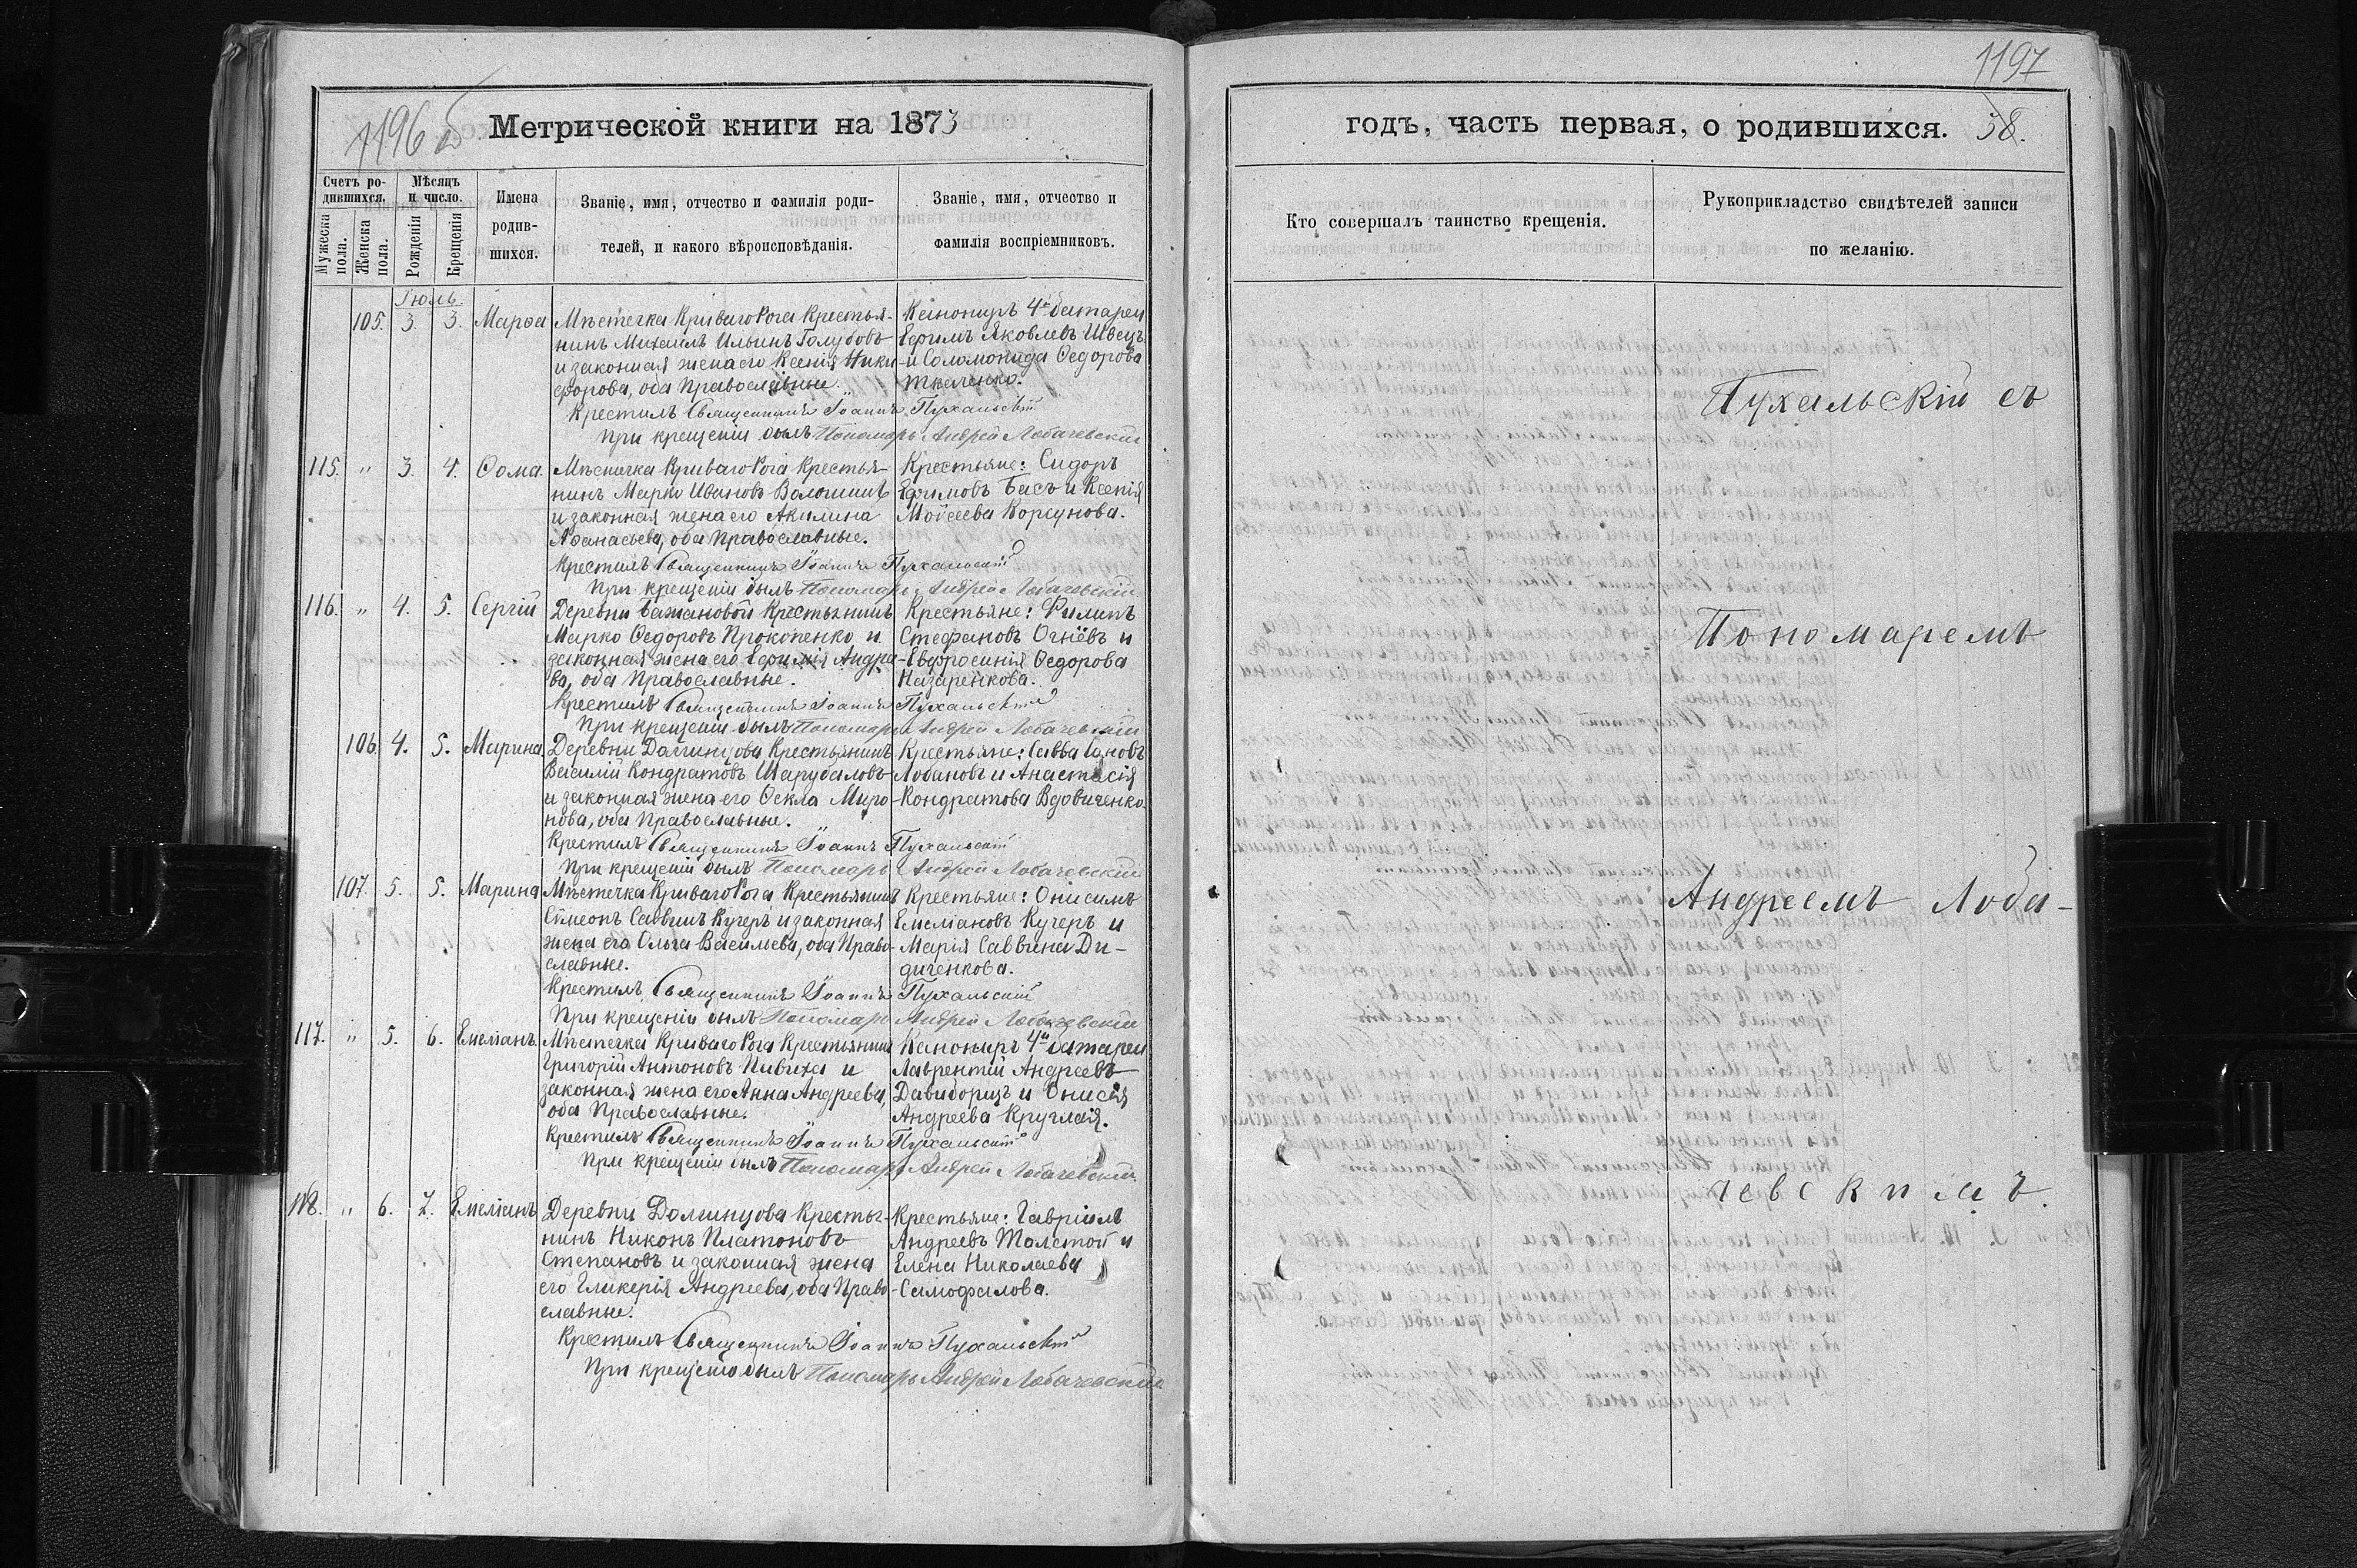 1196 об
Метрической книги на 1873
Счетъ ро-
дившихся.
Мѣсяцъ
и число.
Мужеска
пола.
Женска
пола.
Рожденія
Крещенія
Имена
родив-
шихся.
Званіе, имя, отчество и фамилія роди-
телей, и какого вѣроисповѣданія.
Званіе, имя, отчество и
фамилія воспріемниковъ.
Іюль.
105. 3. 3. Марѳа
Мѣстечка Криваго Рога Крестья-
нинъ Михаилъ Ильинъ Голубовъ
и законная жена его Ксенія Ники-
форова, оба Православные.
Канониръ 4й батареи
Ефимъ Яковлевъ Швецъ
и Соломонида Ѳедорова
Ткаченко.
Крестилъ Священникъ Іоаннъ Пухальскій
При крещеніи былъ Пономарь Андрей Лобачевскій
115. " 3. 4. Ѳома.
Мѣстечка Криваго Рога Крестья-
нинъ Марко Ивановъ Волошинъ
и законная жена его Акилина
Аѳанасьева, оба Православные.
Крестьяне: Сидоръ
Ефимовъ Басъ и Ксенія
Моѵсеева Корсунова.
Крестилъ Священникъ Іоаннъ Пухальскій
При крещеніи былъ Пономарь Андрей Лобачевскій
116. " 4. 5. Сергій
Деревни Бажановой Крестьянинъ
Марко Ѳедоровъ Прокопенко и
законная жена его Ефимія Андре-
ва, оба Православные.
Крестьяне: Филипъ
Стефановъ Огнёвъ и
Евфросинія Ѳедорова
Назаренкова.
Крестилъ Священникъ Іоаннъ Пухальскій
При крещеніи былъ Пономарь Андрей Лобачевскій
106. 4. 5. Марина.
Деревни Долгинцова Крестьянинъ
Василій Кондратовъ Шарубаловъ
и законная жена его Ѳекла Миро-
нова, оба Православные.
Крестьяне: Савва
Лобановъ и Анастасія
Кондратова Вдовиченко.
Крестилъ Священникъ Іоаннъ Пухальскій
При крещеніи былъ Пономарь Андрей Лобачевскій
107. 5. 5. Марина
Мѣстечка Криваго Рога Крестьянинъ
Сѵмеонъ Саввинъ Кучеръ и законная
жена его Ольга Васильева, оба Право-
славные.
Крестьяне: Онисимъ
Емеліановъ Кучеръ и
Марія Саввина Ди-
диченкова.
Крестилъ Священникъ Іоаннъ Пухальскій
При крещеніи былъ Пономарь Андрей Лобачевскій
117. " 5. 6. Емеліанъ.
Мѣстечка Криваго Рога Крестьянинъ
Григорій Антоновъ Пивиха и
законная жена его Анна Андреева,
оба Православные.
Канониръ 4й батареи
Лаврентій Андреевъ
Давидорицъ и Онисія
Андреева Круглая.
Крестилъ Священникъ Іоаннъ Пухальскій
При крещеніи былъ Пономарь Андрей Лобачевскій
118. " 6. 7. Емеліанъ
Деревни Долгинцова Крестья-
нинъ Никонъ Платоновъ
Степановъ и законная жена
его Гликерія Андреева, оба Право-
славные.
Крестьяне: Гавріилъ
Андреевъ Толстой и
Елена Николаева
Самофалова.
Крестилъ Священникъ Іоаннъ Пухальскій
При крещеніи былъ Пономарь Андрей Лобачевскій
1197
годъ, часть первая, о родившихся. 38.
Кто совершалъ таинство крещенія.
Рукоприкладство свидѣтелей записи
по желанію.
Пухальскій съ
Пономаремъ
Андреемъ Лоба-
чевскимъ.